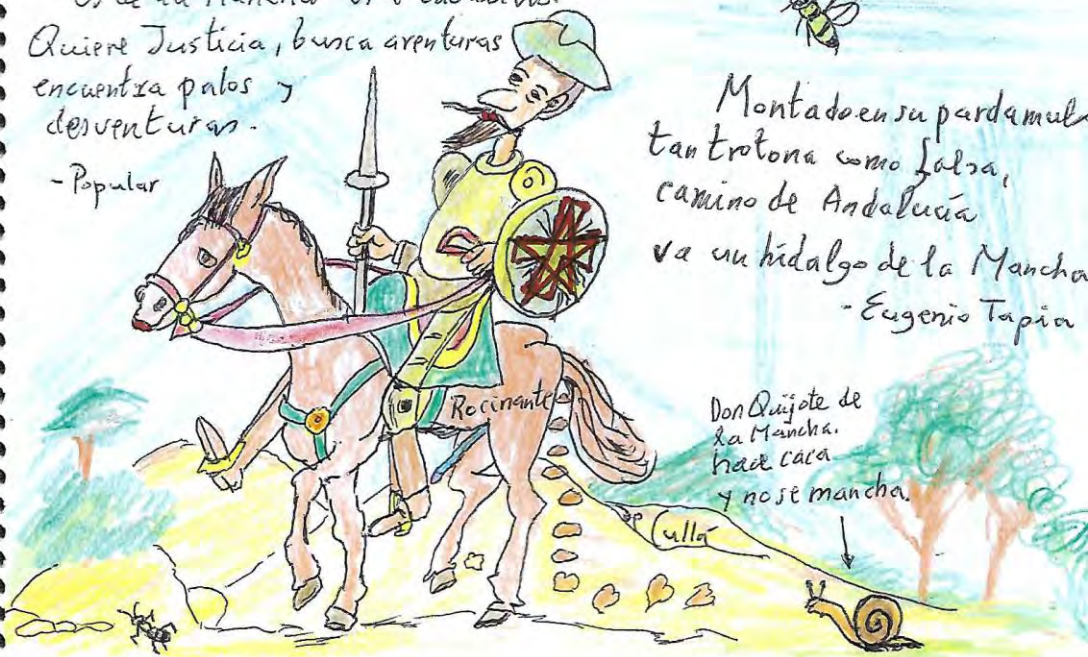 es de la Mancha
Quiere Justicia, busca aventuras
encuentra palos y
desventuras.
-Popular
Montado en su parda mula
tan trotona como falsa,
camino de Andalucía
va un hidalgo de la Mancha
-Eugenio Tapia
Rocinante
Don Quijote de
la Mancha.
hace caca
y no se mancha.
Cullá